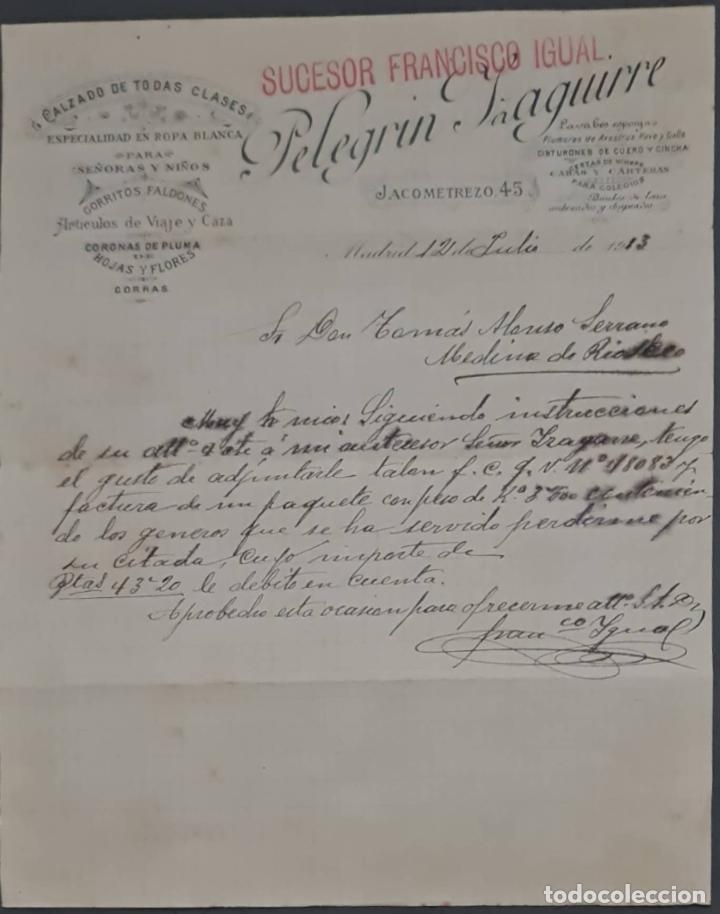 SUCESOR FRANCISCO IGUAL.
Pelegrin Yzaguirre
JACOMETREZO, 45
CALZADO DE TODAS CLASES
ESPECIALIDAD EN ROPA BLANCA
PARA
SEÑORAS Y NIÑOS
GORRITOS, FALDONES,
Artículos de Viaje y Caza
CORONAS DE PLUMA
DE
HOJAS Y FLORES
GORRAS
Lavabos esponjas
Plumeros de Avestruz Pavo y Gallo
CINTURONES DE CUERO Y CINCHA
CESTAS DE MIMBRE
CABÁS Y CARTERAS
PARA COLEGIOS
Bandas de lana
Madrid 12 de Julio de 1913
Sr Don Tomás Alonso Serrano
Medina de Rioseco
Muy Sr mio: Siguiendo instrucciones
de su attª á mi antecesor Señor tengo
el gusto de adjuntarle talon f. c. g. v. nº 48083 y
factura de un paquete con peso de Kº 3'500 contenien
do los generos que se ha servido perdirme por
su citada, cuyo importe de
Ptas 43'20 le debito en cuenta.
Aprobecho esta ocasion para ofrecerme attº S. S.
Franco Igual
todocoleccion.net